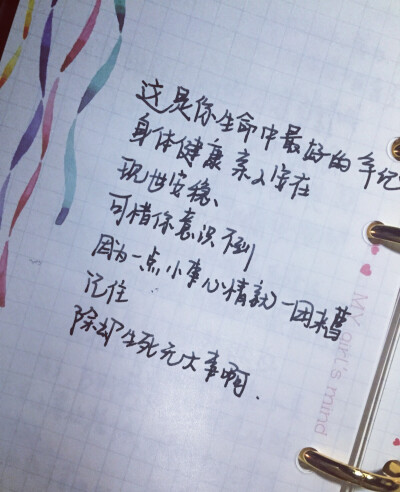 这是你生命中最好的年纪
身体健康亲人安在
现世安稳、
可惜你意识不到
因为一点小事心情就一团糟
记住
除却生死无大事啊.
MY girl's mind